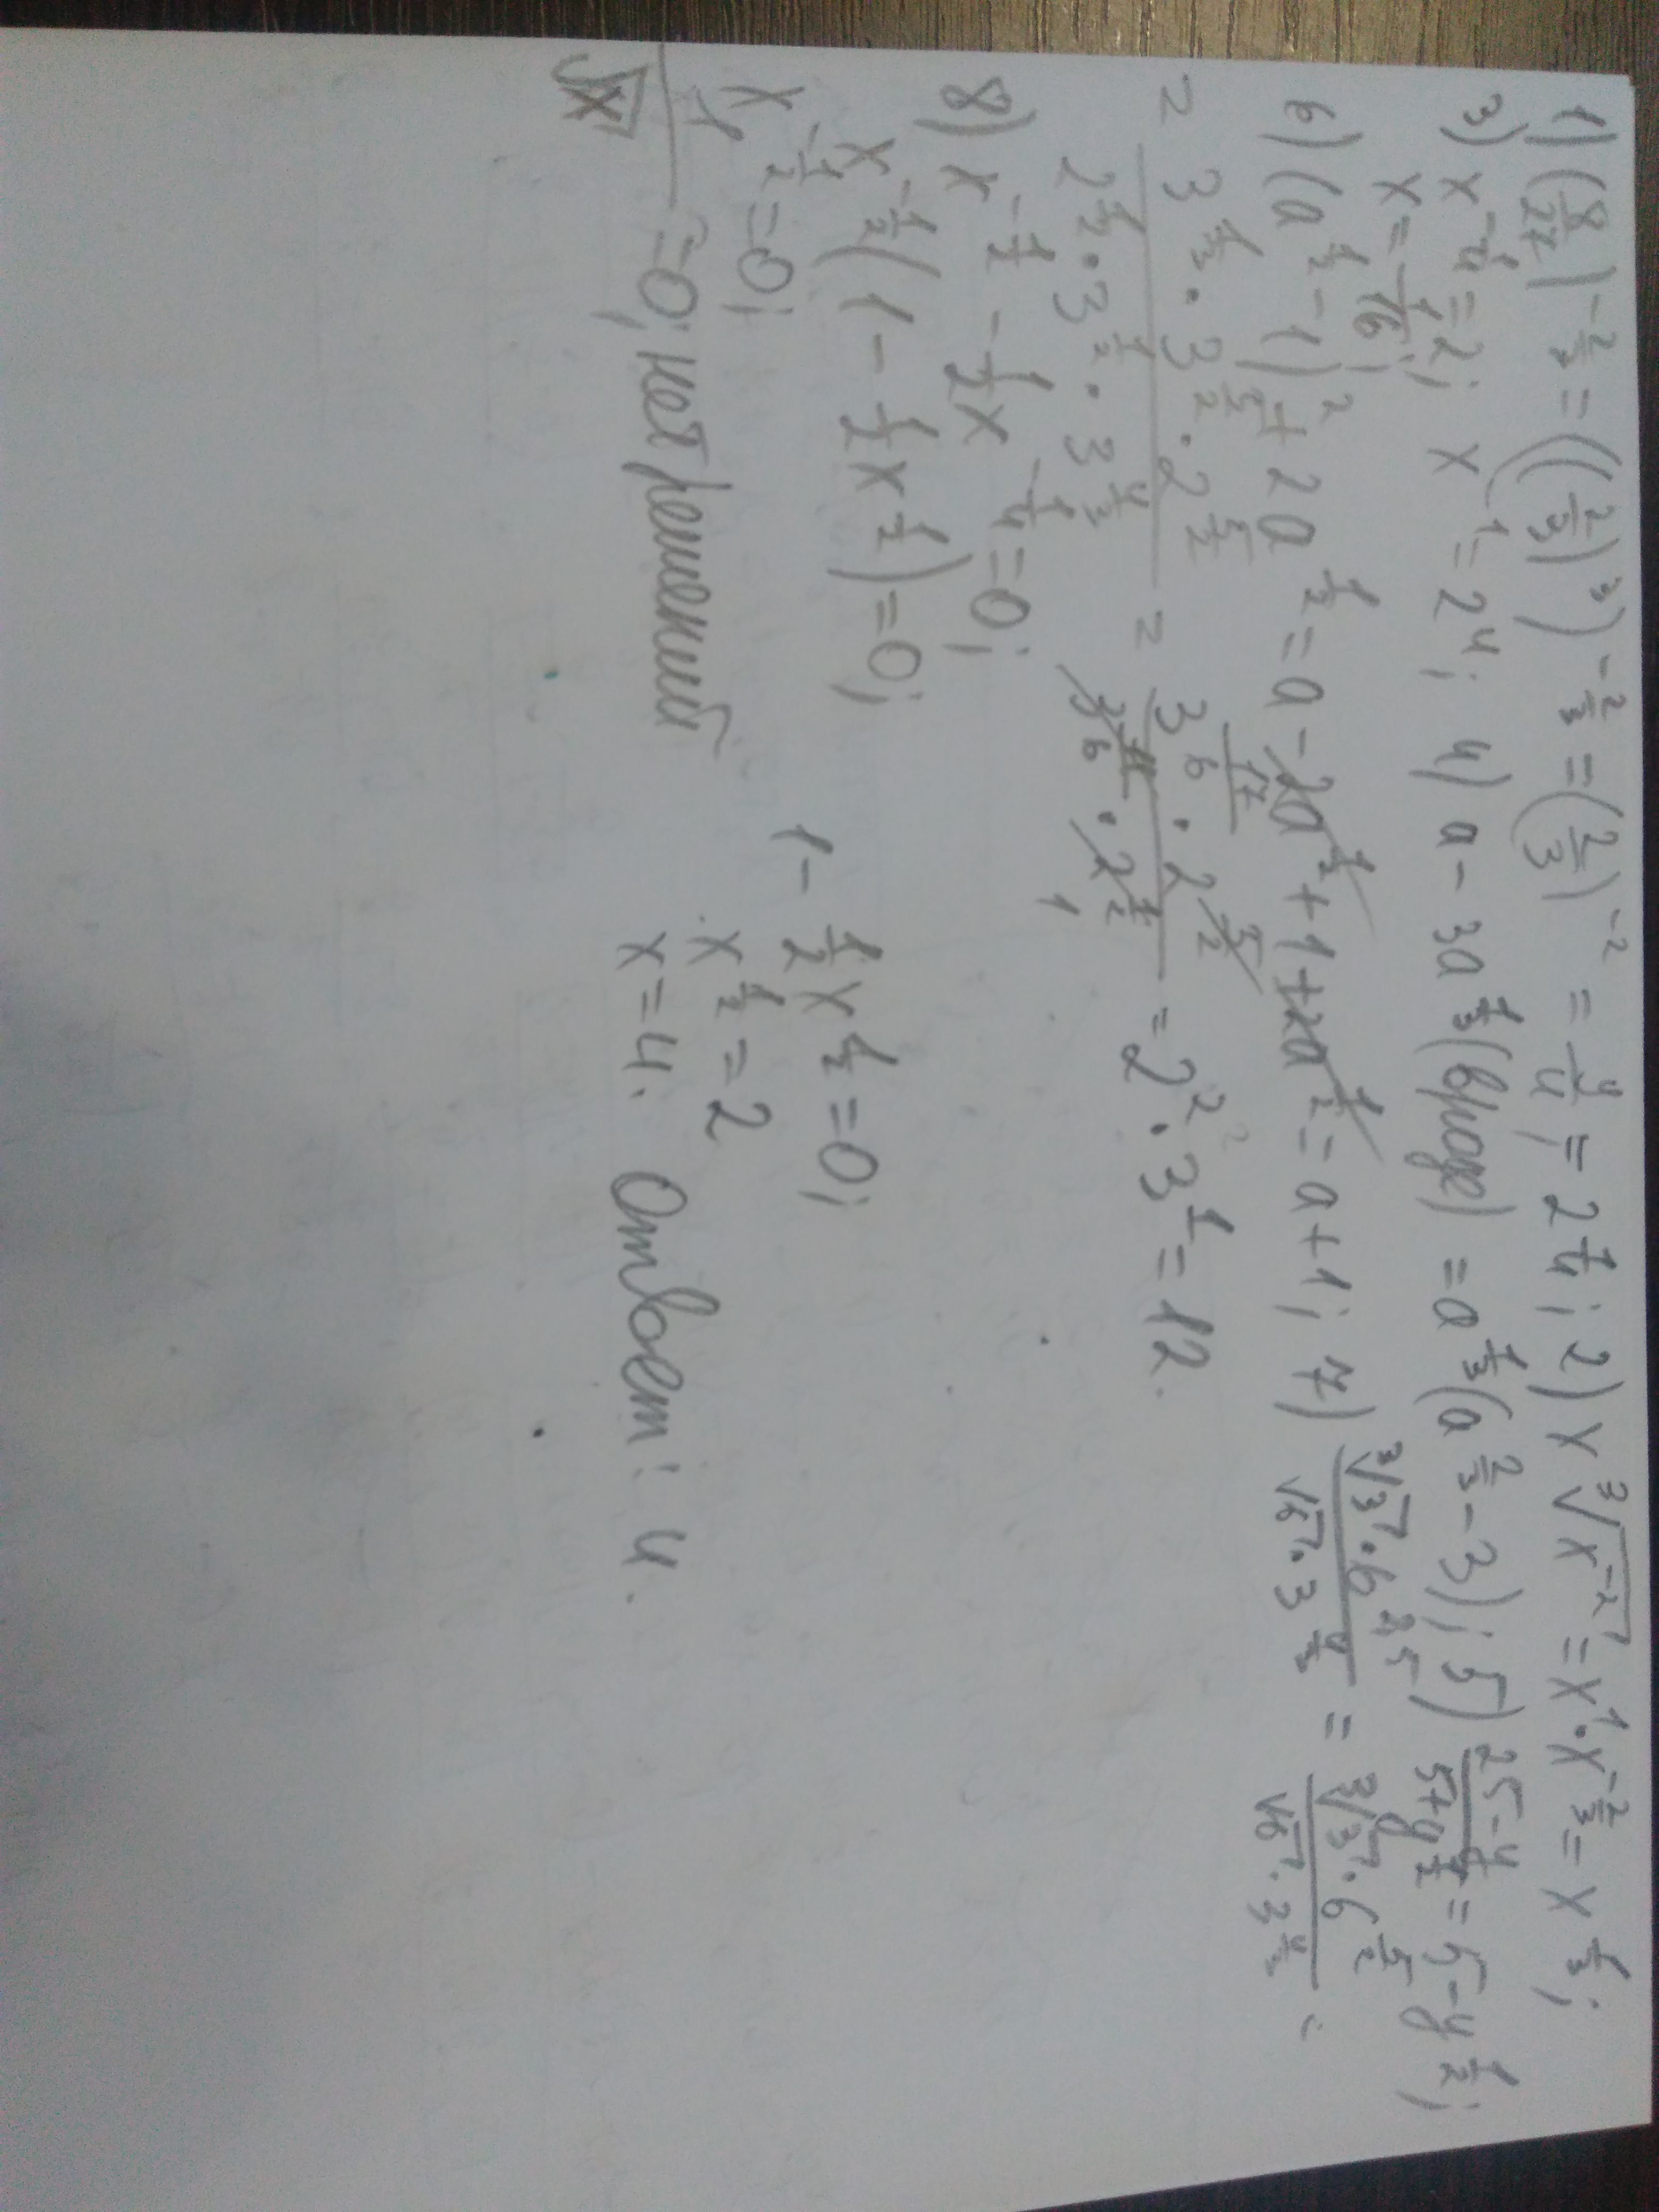 1) (8/27)^(-2/3) = ((2/3)^3)^(-2/3) = (2/3)^(-2) = 9/4 = 2 1/4; 2) x ∛(x^(-2)) = x^1 · x^(-2/3) = x^(1/3);
3) x^(-1/4) = 2; x^(-1) = 2^4; 4) a - 3a^(1/3) = a^(1/3)(a^(2/3) - 3); 5) (25-y)/(5+y^(1/2)) = 5 - y^(1/2);
x = 1/16;
6) (a^(1/2) - 1)^2 + 2a^(1/2) = a - 2a^(1/2) + 1 + 2a^(1/2) = a + 1; 7) (∛3 · 6^(2,5))/(√6 · 3^(4/3)) = (∛3 · 6^(5/2))/(√6 · 3^(4/3)) =
= (3^(1/3) · 3^(5/2) · 2^(5/2))/(2^(1/2) · 3^(1/2) · 3^(4/3)) = (3^(17/6) · 2^(5/2))/(3^(11/6) · 2^(1/2)) = 2^2 · 3^1 = 12.
8) x^(-1/2) - 1/2 x^(-1/4) = 0;
x^(-1/2)(1 - 1/2 x^(1/4)) = 0;
x^(-1/2) = 0; 1 - 1/2 x^(1/2) = 0;
1/√x = 0; нет решений x^(1/2) = 2
x = 4. Ответ: 4.